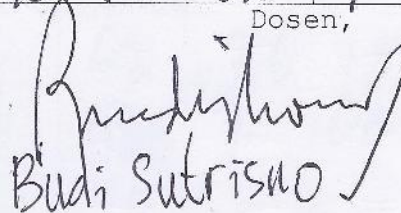 Dosen,
Budi Sutrisno